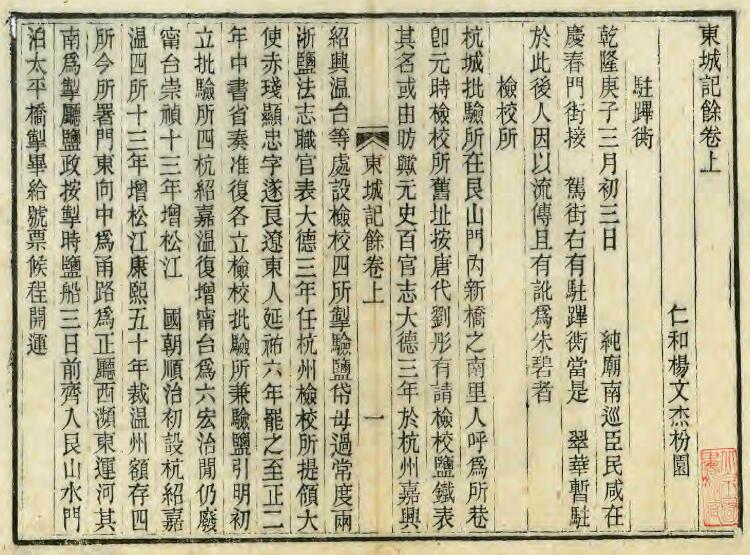 東城記餘卷上
仁和楊文杰枌園
駐蹕衖
乾隆庚子三月初三日 純廟南巡臣民咸在
慶春門街接 駕街右有駐蹕衖當是 翠華暫駐
於此後人因以流傳且有訛爲朱碧者
檢校所
杭城批驗所在艮山門內新橋之南里人呼爲所巷
卽元時檢校所舊址按唐代劉彤有請檢校鹽鐵表
其名或由昉歟元史百官志大德三年於杭州嘉興
東城記餘卷上
一
紹興溫台等處設檢校四所掣驗鹽帒毋過常度兩
浙鹽法志職官表大德三年任杭州檢校所提領大
使赤琖顯忠字遂良遼東人延祐六年罷之至正二
年中書省奏准復各立檢校批驗所兼驗鹽引明初
立批驗所四杭紹嘉溫復增甯台爲六宏治閒仍廢
甯台崇禎十三年增松江 國朝順治初設杭紹嘉
溫四所十三年增松江康熙五十年裁溫州額存四
所今所署門東向中爲甬路爲正廳西瀕東運河其
南爲掣廳鹽政按掣時鹽船三日前齊入艮山水門
泊太平橋掣畢給號票候程開運